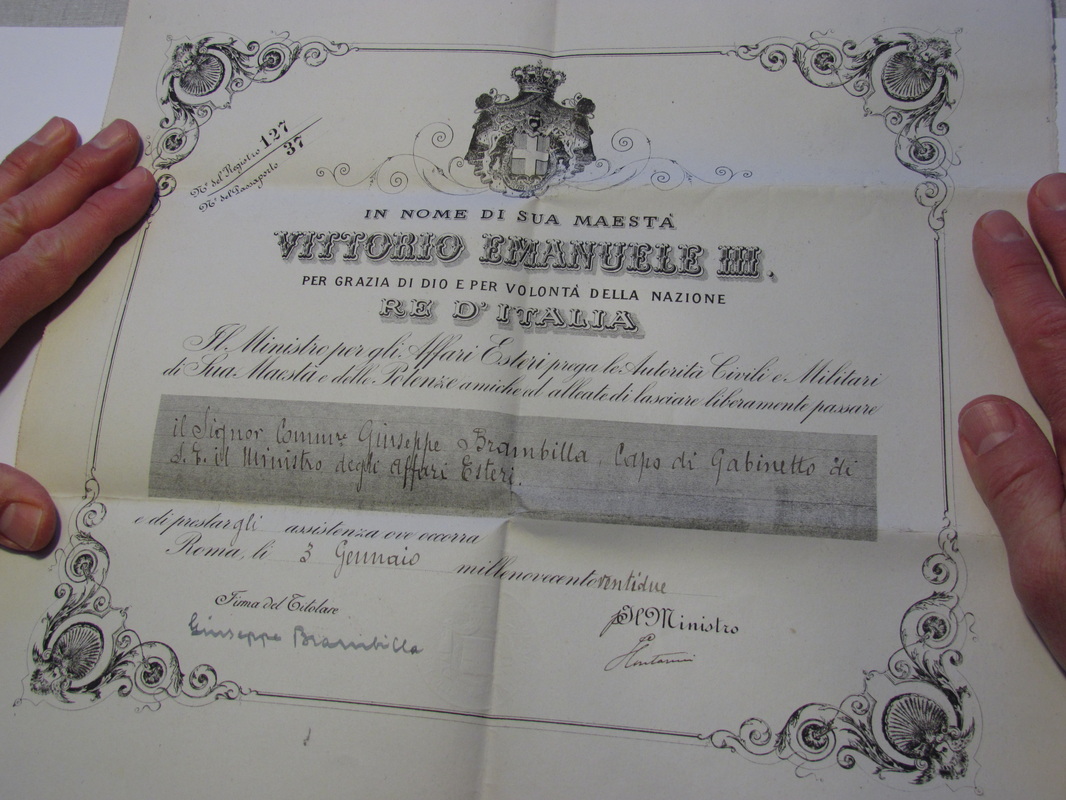 N° del Registro 127
N° del Passaporto 37
IN NOME DI SUA MAESTÀ
VITTORIO EMANUELE III.
PER GRAZIA DI DIO E PER VOLONTÀ DELLA NAZIONE
RE D'ITALIA
Il Ministro per gli Affari Esteri prega le Autorità Civili e Militari
di Sua Maestà e delle Potenze amiche ed alleate di lasciare liberamente passare
il Signor Giuseppe Brambilla, Capo di Gabinetto di
S. E. il Ministro degli Affari Esteri.
e di prestargli assistenza ove occorra
Roma, li 3 Gennaio millenovecentoventidue
Firma del Titolare
Il Ministro
Giuseppe Brambilla